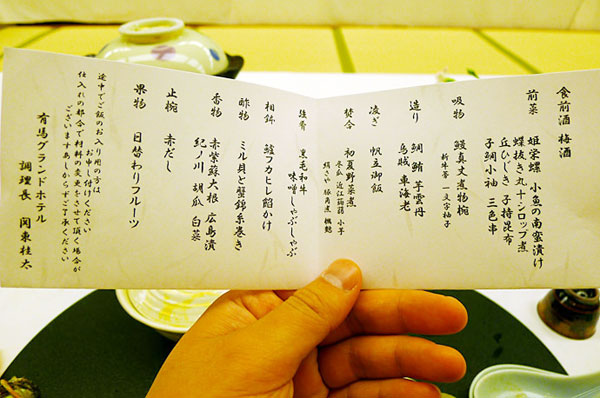 食前酒 梅酒
前菜 姫栄螺 小魚の南蛮漬け
蝶抜き丸十シロップ煮
丘ひじき 子持昆布
子鯛小袖 三色串
吸物 鱧真丈煮物椀
新牛蒡 一文字柚子
造り 鯛 鮪 芋雲丹
烏賊 車海老
凌ぎ 帆立御飯
焚合 初夏野菜煮
冬瓜 近江蒟蒻 小芋
絹さや
強肴 黒毛和牛
味噌しゃぶしゃぶ
相鉢 鱶フカヒレ餡かけ
酢物 ミル貝と蟹錦糸巻き
香物 赤紫蘇大根 広島漬
紀ノ川 胡瓜 白菜
止椀 赤だし
果物 日替わりフルーツ
途中でご飯のお入り用の方は
お申し付けください
仕入れの都合で材料の変更をさせて頂く場合が
ございますあしからずご了承ください
有馬グランドホテル
調理長 関東桂太